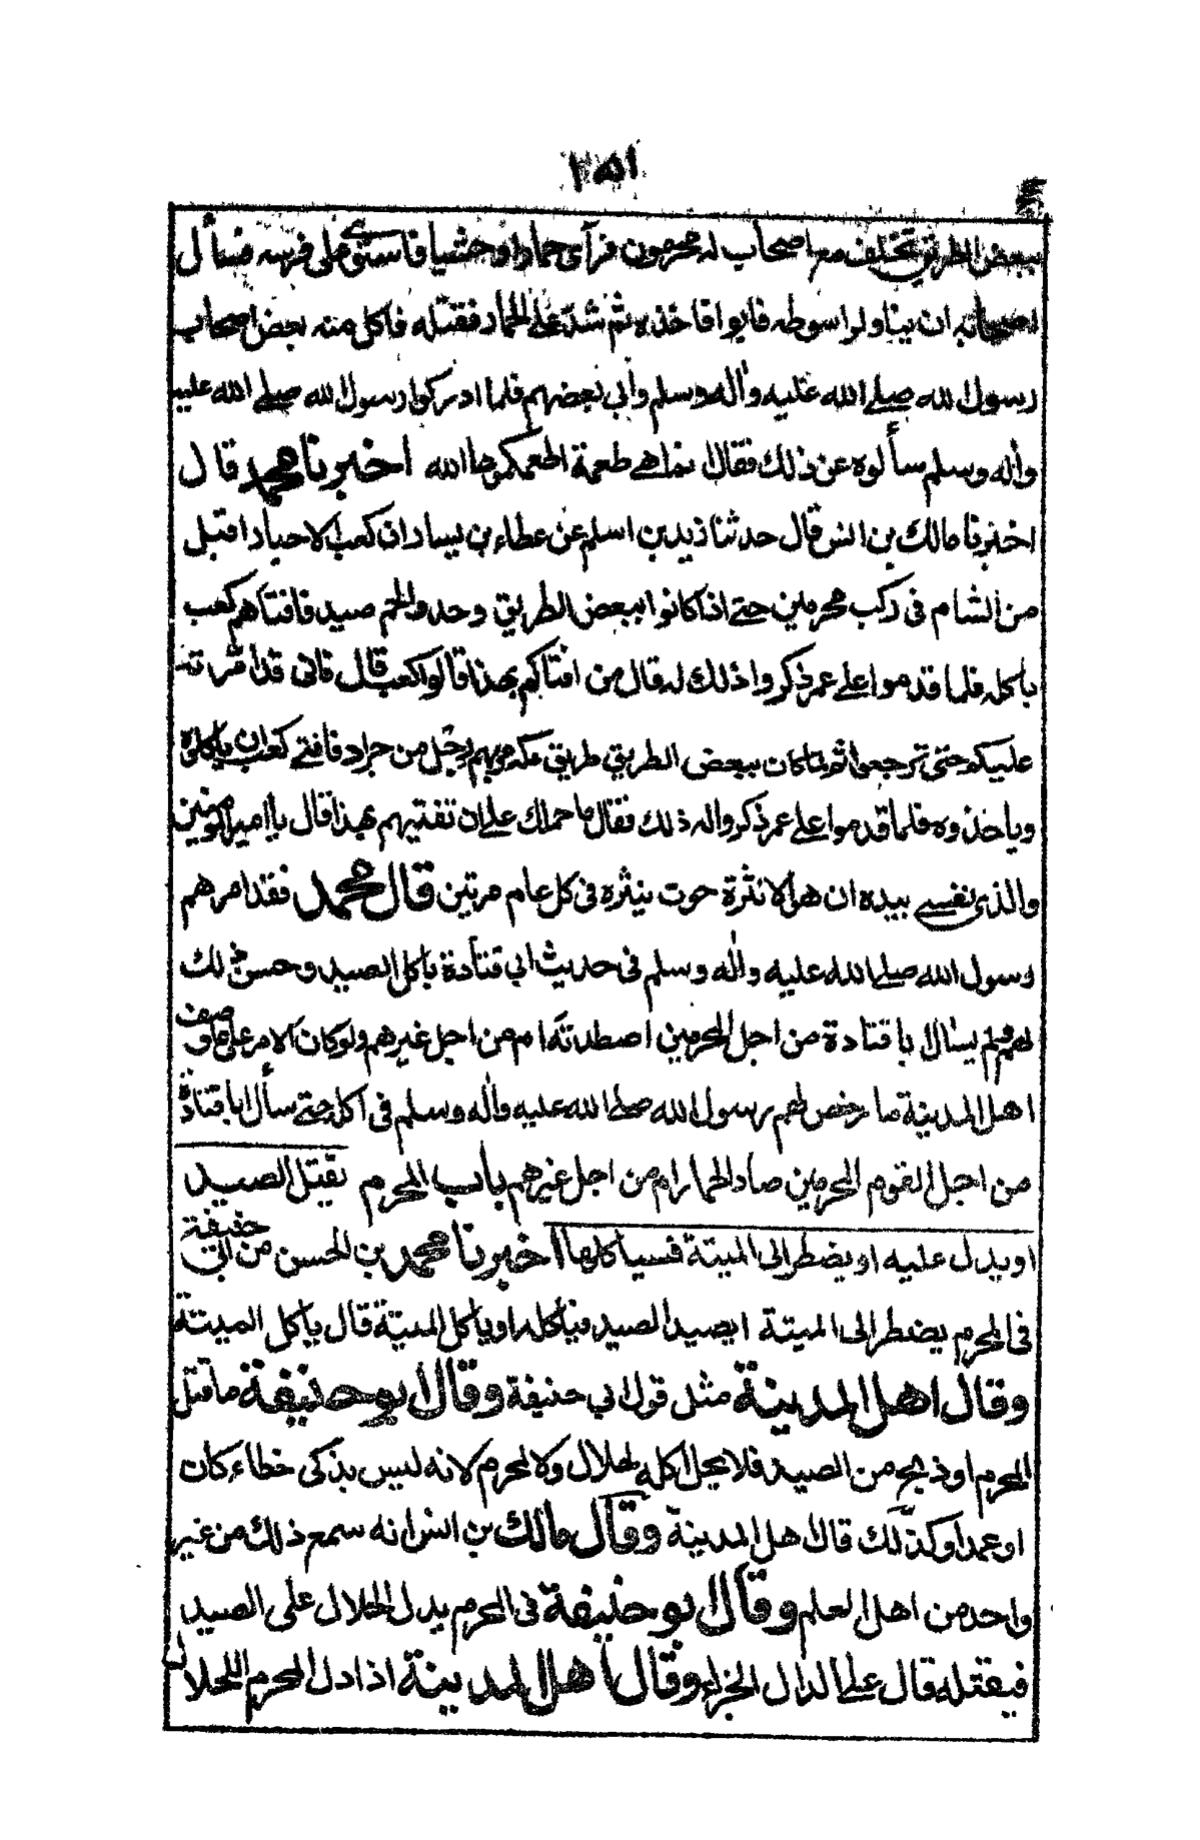 ١٥١
ببعض الطريق تخلف مع اصحاب له محرمون فرآى حمارا وحشيا فاستوى على فرسه فسأل
اصحابه ان يناولوا سوطه فابوا فاخذه ثم شد على الحمار فقتله فاكل منه بعض اصحاب
رسول الله صلے الله عليه واله وسلم وأبى بعضهم فلما ادركوا رسول الله صلے الله عليه
واله وسلم سألوه عن ذلك فقال انما هے طعمة اطعمكموها الله اخبرنا محمد قال
اخبرنا مالك بن انس قال حدثنا زيد بن اسلم عن عطاء بن يسار ان كعب الاحبار اقبل
من الشام فى ركب محرمين حتے اذا كانوا ببعض الطريق وجدوا لحم صيد فافتاهم كعب
باكله فلما قدموا علے عمر ذكروا ذلك له قال من افتاكم بهذا قالوا كعب قال فانى قد امرته
عليكم حتى ترجعوا ثم لما كان ببعض الطريق طريق مكه مر بهم رجل من جراد فافتے كعب ان ياكلوه
وياخذوه فلما قدموا علے عمر ذكروا له ذلك فقال ما حملك علے ان تفتيهم بهذا قال يا امير المومنين
والذى نفسے بيده ان هو الا نثرة حوت ينثره فى كل عام مرتين قال محمد فقد امرهم
رسول الله صلے الله عليه واله وسلم فى حديث ابي قتادة باكل الصيد وحسن ذلك
لهم فلم يسأل ابا قتادة من اجل المحرمين اصطدته ام من اجل غيرهم ولو كان الامر على ما وصف
اهل المدينة ما رخص لهم رسول الله صلے الله عليه واله وسلم فى اكله حتے سأل ابا قتادة
من اجل القوم المحرمين صاد الحمار ام من اجل غيرهم باب المحرم يقتل الصيد
او يدل عليه او يضطر الى الميتة فسياكلها اخبرنا محمد بن الحسن عن ابى حنيفة
فى المحرم يضطر الى الميتة ايصيد الصيد فياكله او ياكل الميتة قال ياكل الميتة
وقال اهل المدينة مثل قول ابي حنيفة وقال ابو حنيفة ما قتل
المحرم او ذبح من الصيد فلا يحل اكله لحلال ولا لمحرم لانه ليس بذكى خطاء كان
او عمدا وكذلك قال اهل المدينة وقال مالك بن انس انه سمع ذلك من غير
واحد من اهل العلم وقال ابو حنيفة فى المحرم يدل الحلال على الصيد
فيقتله قال على الدال الجزاء وقال اهل المدينة اذا دل المحرم الحلال